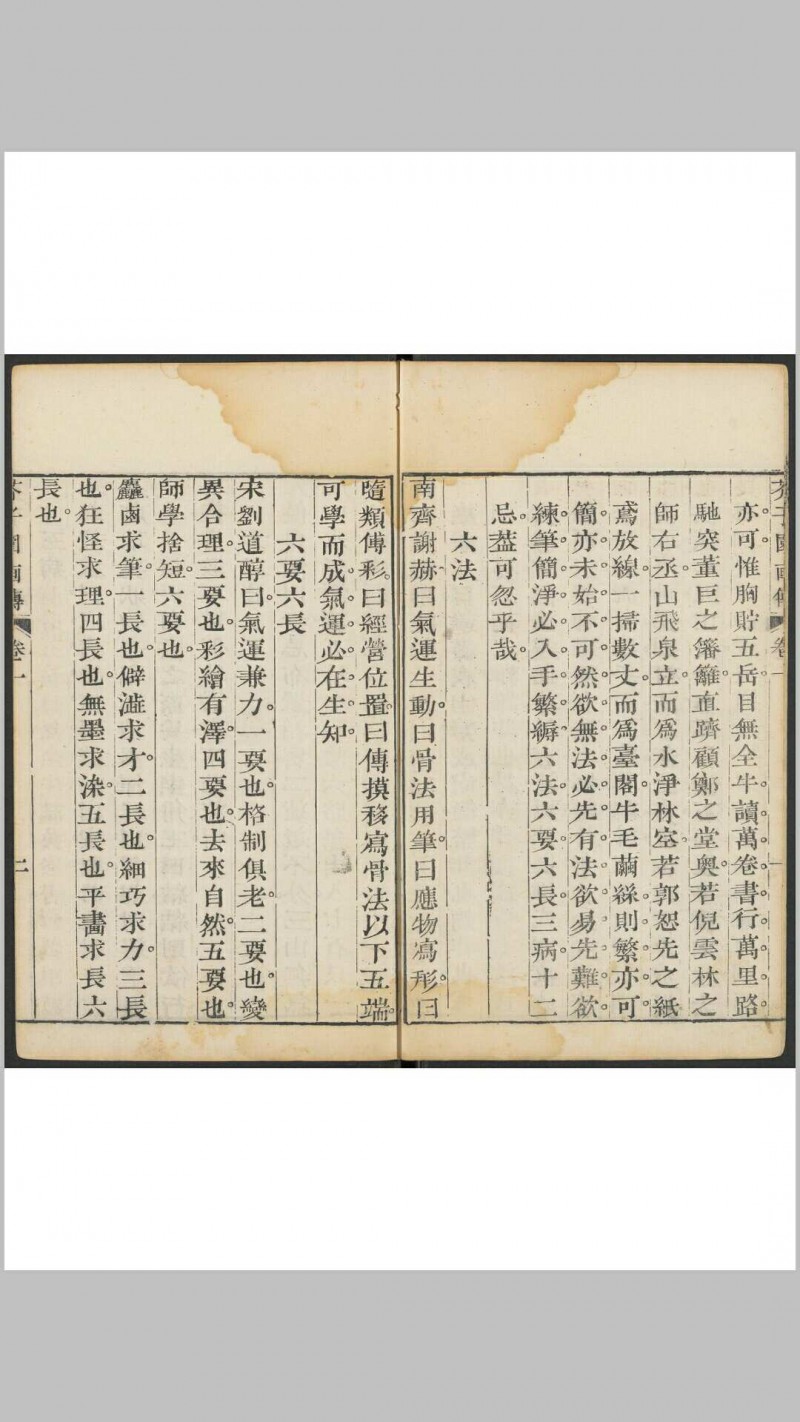 芥子園畫傳 卷一 一
亦可。惟胸貯五岳。目無全牛。讀萬卷書。行萬里路。
馳突董巨之籓籬。直躋顧鄭之堂奧。若倪雲林之
師右丞。山飛泉立。而爲水淨林空。若郭恕先之紙
鳶放線。一掃數丈。而爲臺閣。牛毛繭絲。則繁亦可。
簡亦未始不可。然欲無法。必先有法。欲易先難。欲
練筆簡淨。必入手繁縟。六法六要。六長三病。十二
忌。葢可忽乎哉。
六法
南齊謝赫曰氣運生動。曰骨法用筆。曰應物寫形。曰
隨類傅彩。曰經營位置。曰傳摸移寫。骨法以下五端。
可學而成。氣運必在生知。
六要六長
宋劉道醇曰。氣運兼力。一要也。格制俱老。二要也。變
異合理。三要也。彩繪有澤。四要也。去來自然。五要也。
師學捨短。六要也
麤鹵求筆。一長也。僻澁求才。二長也。細巧求力。三長
也。狂怪求理。四長也。無墨求染。五長也。平畵求長。六
長也。
芥子園畫傳 卷一 二